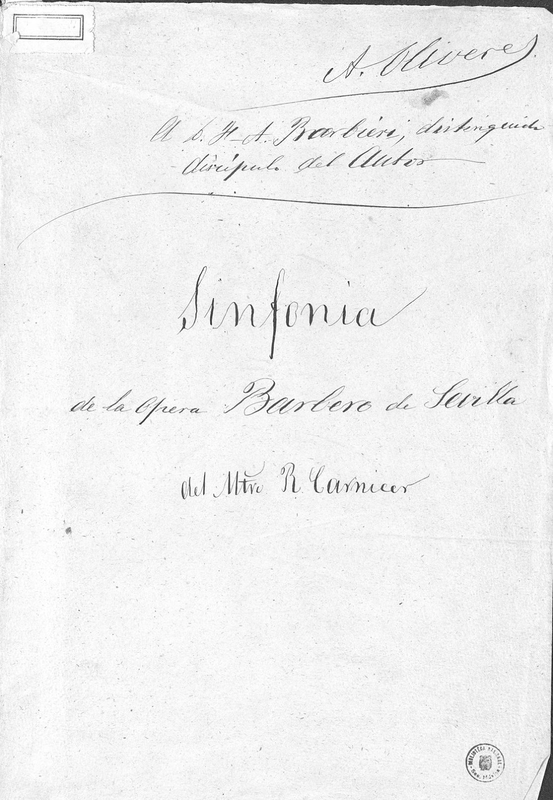 A. Oliveres.
A D. F. A. Barbieri, distinguido
discípulo del Autor
Sinfonia
de la Opera Barbero de Sevilla
del Mtro R. Carnicer
BIBLIOTECA NACIONAL